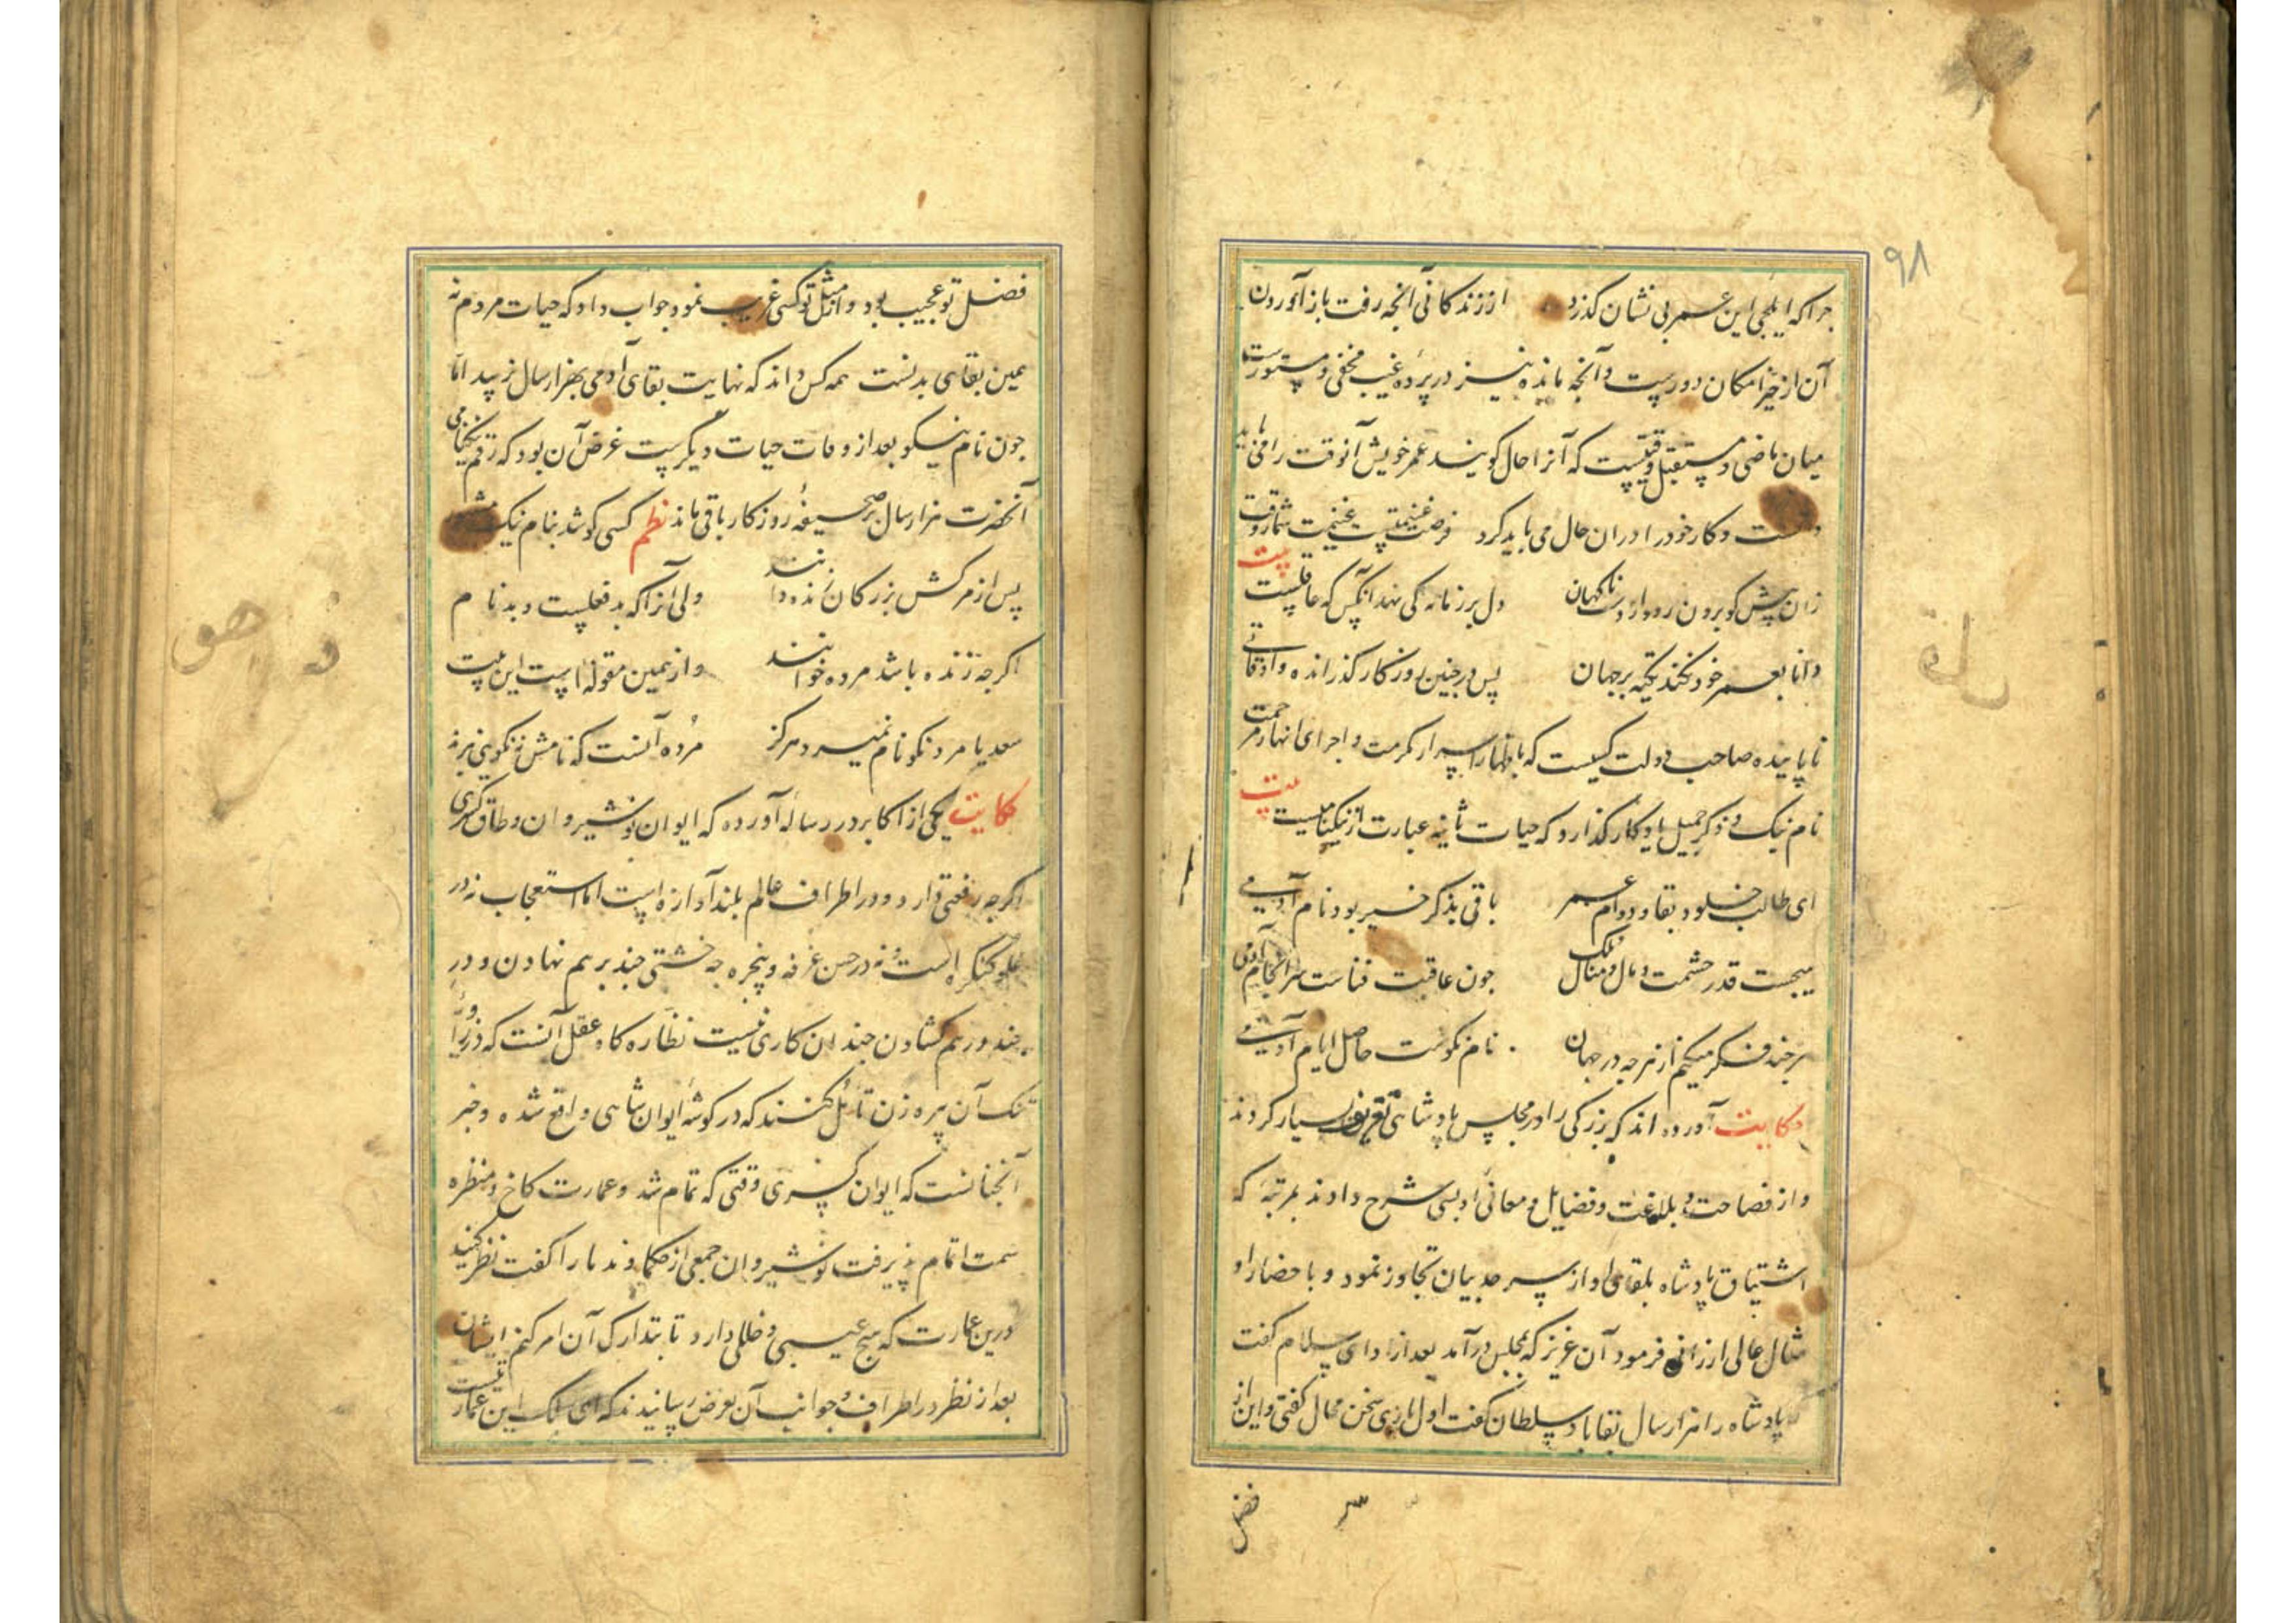 ۹۸
جرا که ایلجی این عمر بی نشان کذرد از زندکانی آنجه رفت باز آوردن
آن از حیز امکان دورست و آنجه مانده نیز در پردهٔ غیب مخفی و مستورست
میان ماضی و مستقبل وقتیست که آنرا حال کویند عمر خویش آنوقت را می باید
دانست و کار خود را در ان حال می باید کرد فرصت غنیمتست غنیمت شمار وقت
بیت
زان پیش کو برون رود از دست ناکهان دل بر زمانه کی نهد آنکس که عاقلست
دانا بعمر خود نکند تکیه بر جهان پس در جنین روزکار کذرانده و اوقاتی
ناپاینده صاحب دولت کسیست که باظهار اسرار مکرمت و اجرای انهار مرحمت
نام نیک و ذکر جمیل یادکار کذارد که حیات ثانیه عبارت از نیکنامیست
بیت
ای طالب خلود و بقا و دوام عمر باقی بذکر خیر بود نام آدمی
هیجست قدر حشمت و مال و منال و ملک جون عاقبت فناست سرانجام آدمی
هر جند فکر میکنم از هر جه در جهان نام نکوست حاصل ایام آدمی
حکایت آورده اند که بزرکی را در مجلس پادشاهی تعریف بسیار کردند
و از فصاحت و بلاغت و فضایل و معانی او بسی شرح دادند بمرتبهٔ که
اشتیاق پادشاه بلقای او از سرحد بیان تجاوز نمود و باحضار او
مثال عالی ارزانی فرمود آن عزیز که بمجلس درآمد بعد از ادای سلام کفت
پادشاه را هزار سال بقا باد سلطان کفت اول بار بی سخن محال کفتی و این از
فضل
فضل تو عجیب بود و از مثل تو کسی غریب نمود جواب داد که حیات مردم نه
همین بقای بدنست همه کس داند که نهایت بقای آدمی بهزار سال نرسد اما
جون نام نیکو بعد از وفات حیات دیکرست غرض آن بود که رقم نیکنامی
آنحضرت هزار سال بر صحیفهٔ روزکار باقی ماند نظم کسی کو شد بنام نیک مشهور
پس از مرکش بزرکان زنده دانند ولی آنرا که بد فعلست و بد نام
اکر جه زنده باشد مرده خوانند و از همین مقوله است این بیت
سعدیا مرد نکو نام نمیرد هرکز مرده آنست که نامش نکویی نبرند
حکایت یکی از اکابر در رسالهٔ آورده که ایوان نوشیروان و طاق کسری
اکر جه رفعتی دارد و در اطراف عالم بلند آوازه است اما استعجاب نه در
علو کنکره است و نه در حسن غرفه و پنجره جه خشتی جند بر هم نهادن و در
جند در هم کشادن جندان کاری نیست نظاره کاه عقل آنست که در زاویهٔ
تنک آن پیره زن تامل کنند که در کوشهٔ ایوان شاهی واقع شده و خبر
آنجنانست که ایوان کسری وقتی که تمام شد و عمارت کاخ و منظره
سمت اتمام پذیرفت نوشیروان جمعی از حکما و ندما را کفت نظر کنید
درین عمارت که هیج عیبی و خللی دارد تا بتدارک آن امر کنم ایشان
بعد از نظر در اطراف و جوانب آن بعرض رسانیدند که ای ملک این عمارتیست